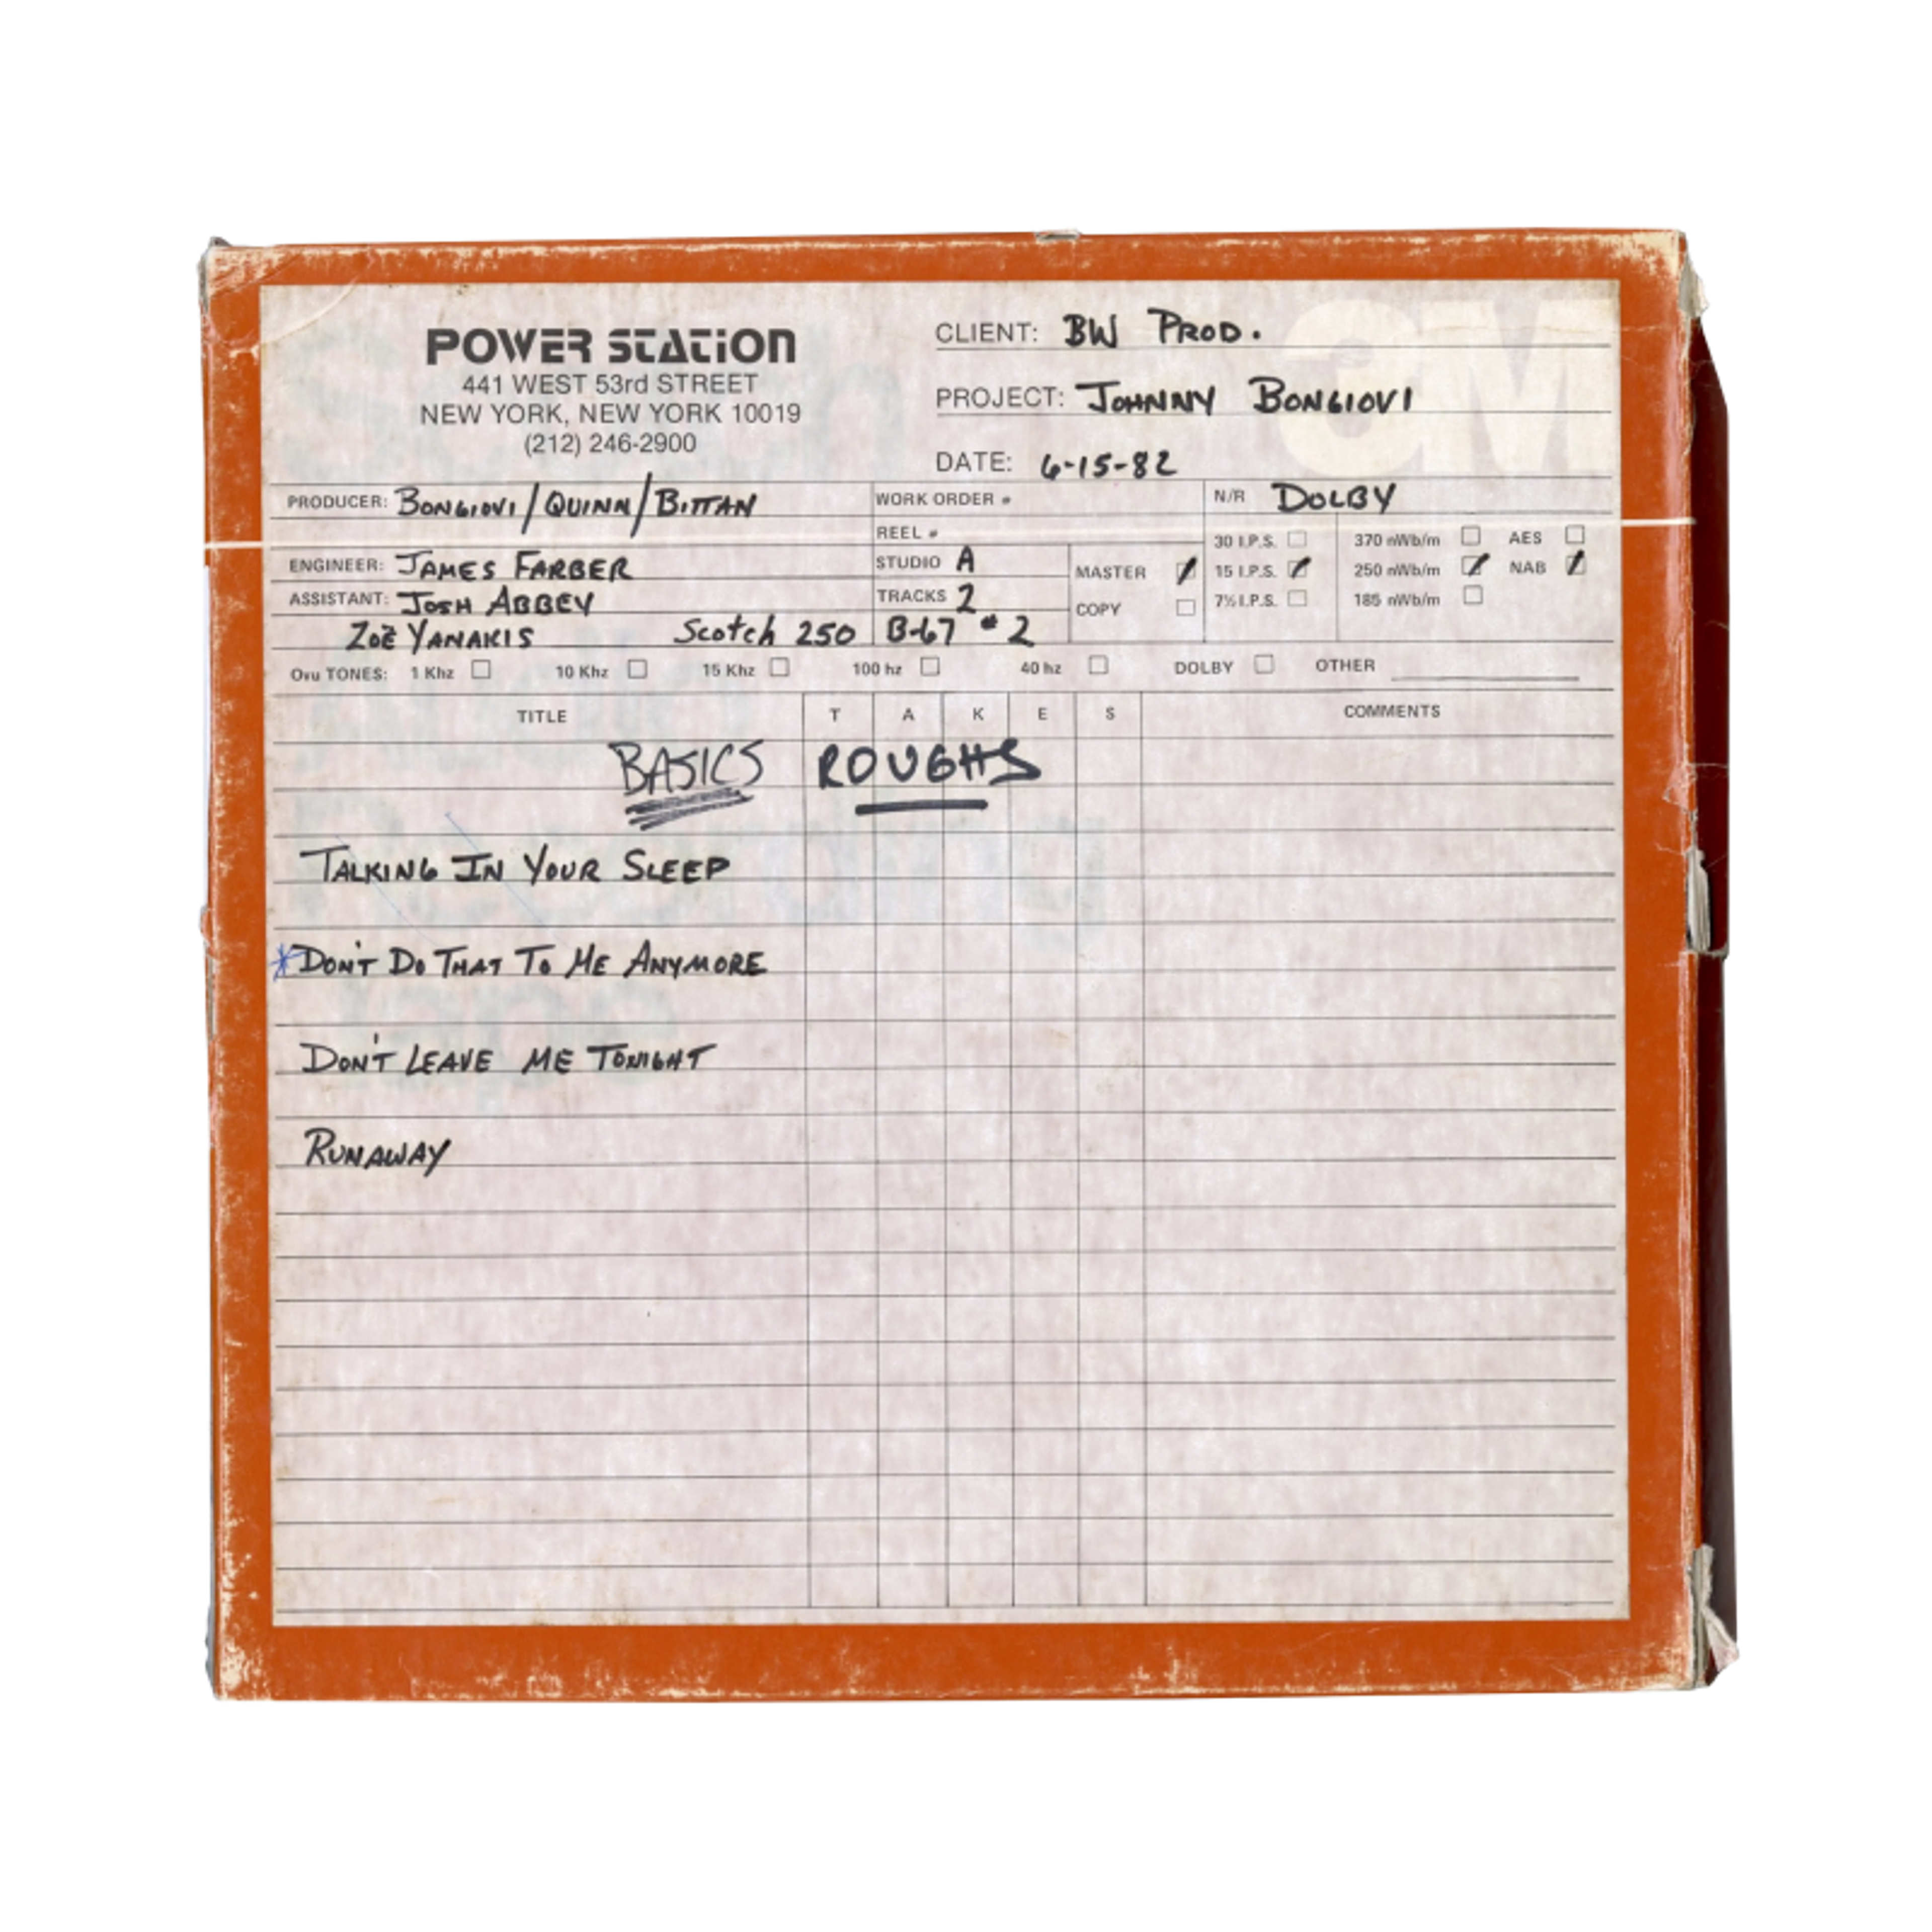 POWER STATION
441 WEST 53rd STREET
NEW YORK, NEW YORK 10019
(212) 246-2900
CLIENT: BW PROD.
3M
PROJECT: JOHNNY BONGIOVI
DATE: 6-15-82
PRODUCER: BONGIOVI/QUINN/BITTAN
WORK ORDER #
N/R DOLBY
REEL #
30 I.P.S. 370 nWb/m AES
ENGINEER: JAMES FARBER
STUDIO A
MASTER
15 I.P.S. 250 nWb/m NAB
ASSISTANT: JOSH ABBEY
TRACKS 2
COPY
7½ I.P.S. 185 nWb/m
ZOË YANAKIS Scotch 250 B-67 #2
Ovu TONES: 1 Khz 10 Khz 15 Khz 100 hz 40 hz DOLBY OTHER
TITLE T A K E S COMMENTS
BASICS ROUGHS
TALKING IN YOUR SLEEP
*DON'T DO THAT TO ME ANYMORE
DON'T LEAVE ME TONIGHT
RUNAWAY